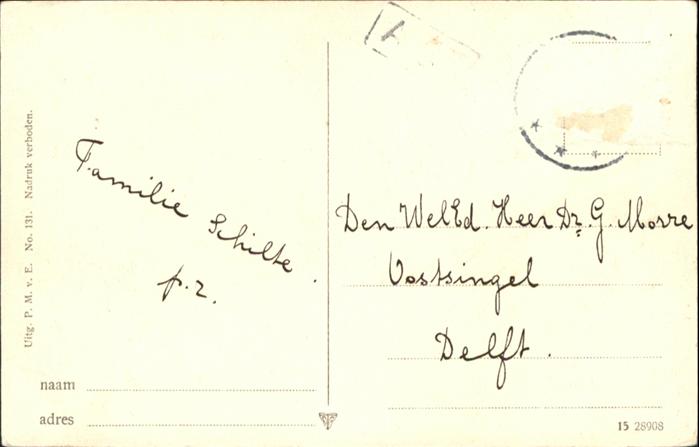 Uitg. P. M. v. E. No. 131. Nadruk verboden.
Familie Schilte
p.z.
naam
adres
Den WelEd. Heer Dr. G. Morre
Oostsingel
Delft.
15 28908